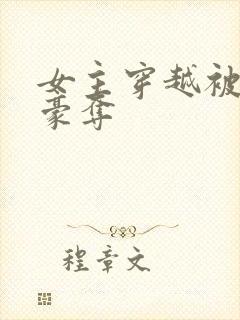 女主穿越被
豪夺
程章文